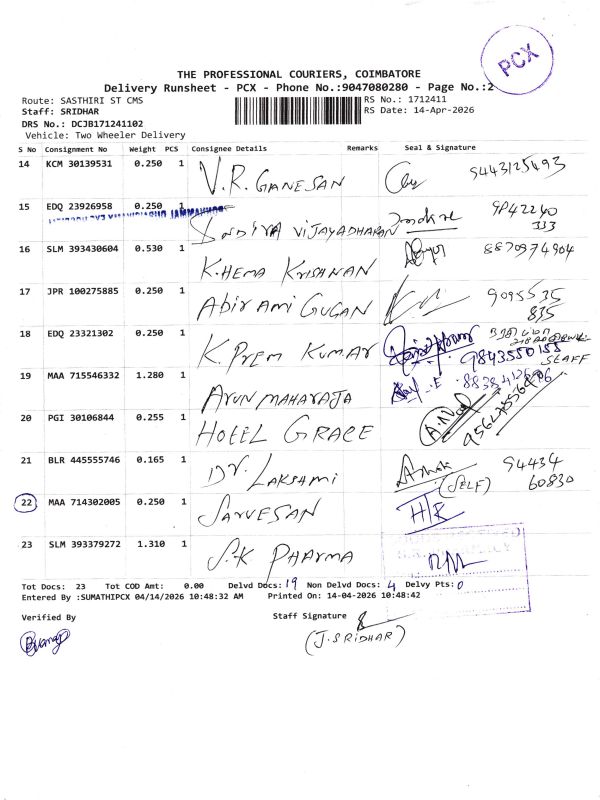 PCX
THE PROFESSIONAL COURIERS, COIMBATORE
Delivery Runsheet - PCX - Phone No.:9047080280 - Page No.:2
Route: SASTHIRI ST CMS
RS No.: 1712411
Staff: SRIDHAR
RS Date: 14-Apr-2026
DRS No.: DCJB171241102
Vehicle: Two Wheeler Delivery
S No Consignment No Weight PCS Consignee Details Remarks Seal & Signature
14 KCM 30139531 0.250 1 V.R. GANESAN 9443125493
15 EDQ 23926958 0.250 1 VIJAYADHARAN 9P42240
333
16 SLM 393430604 0.530 1 K.HEMA KRISHNAN 8870974904
17 JPR 100275885 0.250 1 Abirami GUGAN 9095535
835
18 EDQ 23321302 0.250 1 K. PREM KUMAR 9843550155
19 MAA 715546332 1.280 1 ARUN MAHARAJA
20 PGI 30106844 0.255 1 HOTEL GRACE
21 BLR 445555746 0.165 1 DR. LAKSHMI Ashok 94434
(SELF) 60830
22 MAA 714302005 0.250 1 SARVESAN H/R
23 SLM 393379272 1.310 1 S.K PHARMA
Tot Docs: 23 Tot COD Amt: 0.00 Delvd Docs: 19 Non Delvd Docs: 4 Delvy Pts: 0
Entered By :SUMATHIPCX 04/14/2026 10:48:32 AM Printed On: 14-04-2026 10:48:42
Verified By
Staff Signature
(J.SRIDHAR)